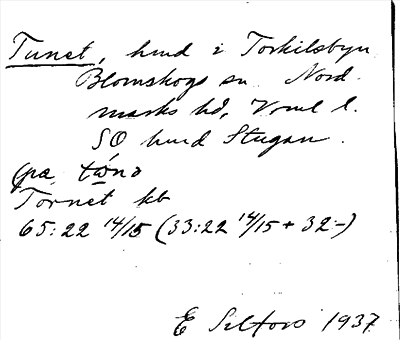 Tunet, hmd i Torkilsbyn
Blomskogs sn Nord-
marks hd, Vrml l.
SO hmd Stugan.
på tωnə
Tornet kb
65:22 14/15 (33:22 14/15 + 32:-)
E 1937